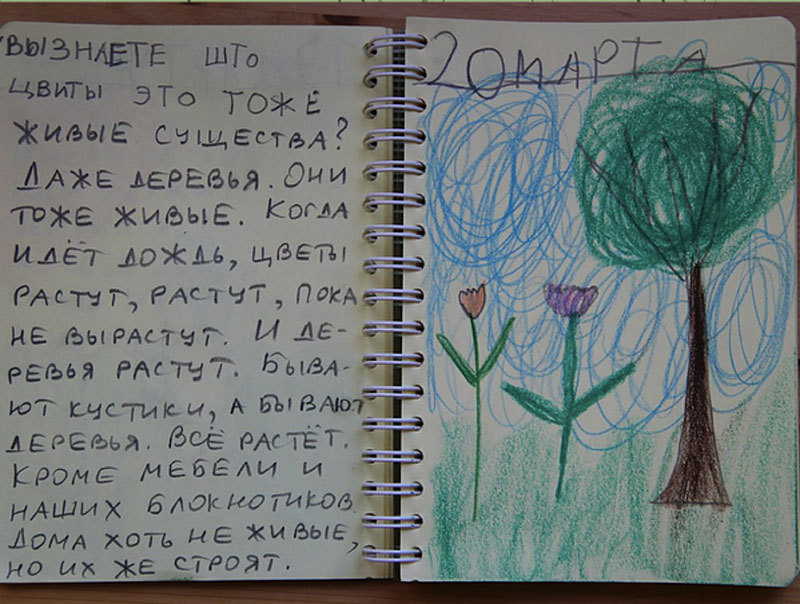 ВЫ ЗНАЕТЕ ШТО
ЦВИТЫ ЭТО ТОЖЕ
ЖИВЫЕ СУЩЕСТВА?
ДАЖЕ ДЕРЕВЬЯ. ОНИ
ТОЖЕ ЖИВЫЕ. КОГДА
ИДЁТ ДОЖДЬ, ЦВЕТЫ
РАСТУТ, РАСТУТ, ПОКА
НЕ ВЫРАСТУТ. И ДЕ-
РЕВЬЯ РАСТУТ. БЫВА-
ЮТ КУСТИКИ, А БЫВАЮТ
ДЕРЕВЬЯ. ВСЁ РАСТЁТ.
КРОМЕ МЕБЕЛИ И
НАШИХ БЛОКНОТИКОВ
ДОМА ХОТЬ НЕ ЖИВЫЕ,
НО ИХ ЖЕ СТРОЯТ.
20 МАРТА